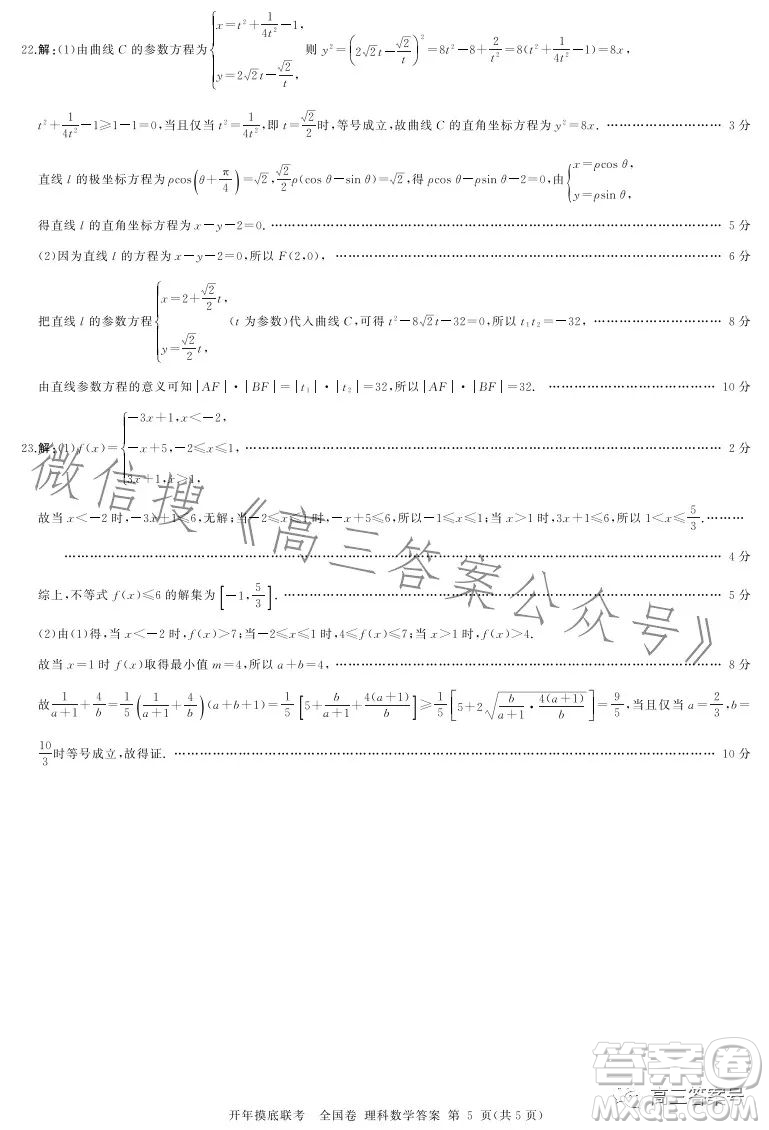 22.解:(1)由曲线 C 的参数方程为{x=t²+1/(4t²)-1, y=2√2t-√2/t, 则 y²=(2√2t-√2/t)²=8t²-8+2/t²=8(t²+1/(4t²)-1)=8x,
t²+1/(4t²)-1≥1-1=0,当且仅当 t²=1/(4t²),即 t=√2/2时,等号成立,故曲线 C 的直角坐标方程为 y²=8x. ……………… 3 分
直线 l 的极坐标方程为 ρcos(θ+π/4)=√2,√2/2ρ(cos θ-sin θ)=√2,得 ρcos θ-ρsin θ-2=0,由{x=ρcos θ, y=ρsin θ,
得直线 l 的直角坐标方程为 x-y-2=0. ……………… 5 分
(2)因为直线 l 的方程为 x-y-2=0,所以 F(2,0), ……………… 6 分
把直线 l 的参数方程{x=2+√2/2t, y=√2/2t, (t 为参数)代入曲线 C,可得 t²-8√2t-32=0,所以 t₁t₂=-32, ……………… 8 分
由直线参数方程的意义可知|AF|·|BF|=|t₁|·|t₂|=32,所以|AF|·|BF|=32. ……………… 10 分
23.解:(1)f(x)={-3x+1,x<-2, -x+5,-2≤x≤1, 3x+1,x>1, ……………… 2 分
故当 x<-2 时,-3x+1≤6,无解;当-2≤x≤1 时,-x+5≤6,所以-1≤x≤1;当 x>1 时,3x+1≤6,所以 1<x≤5/3. ………
……………… 4 分
综上,不等式 f(x)≤6 的解集为[-1,5/3]. ……………… 5 分
(2)由(1)得,当 x<-2 时,f(x)>7;当-2≤x≤1 时,4≤f(x)≤7;当 x>1 时,f(x)>4.
故当 x=1 时 f(x)取得最小值 m=4,所以 a+b=4, ……………… 8 分
故1/(a+1)+4/b=1/5(1/(a+1)+4/b)(a+b+1)=1/5[5+b/(a+1)+4(a+1)/b]≥1/5[5+2√(b/(a+1)·4(a+1)/b)]=9/5,当且仅当 a=2/3,b=
10/3时等号成立,故得证. ……………… 10 分
微信搜《高三答案公众号》
答案卷
高三答案号
开年摸底联考 全国卷 理科数学答案 第 5 页(共 5 页)